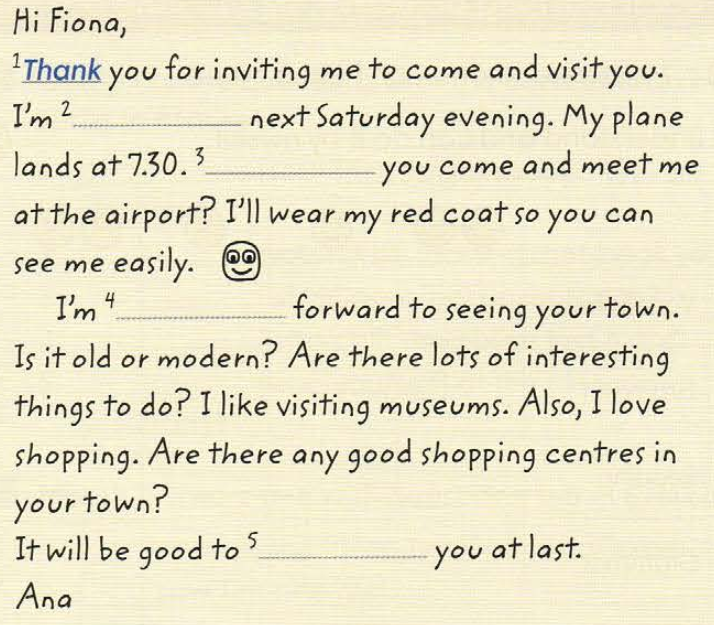 Hi Fiona,
1 Thank you for inviting me to come and visit you.
I'm 2 .................... next Saturday evening. My plane
lands at 7.30. 3 .................... you come and meet me
at the airport? I'll wear my red coat so you can
see me easily.
I'm 4 .................... forward to seeing your town.
Is it old or modern? Are there lots of interesting
things to do? I like visiting museums. Also, I love
shopping. Are there any good shopping centres in
your town?
It will be good to 5 .................... you at last.
Ana